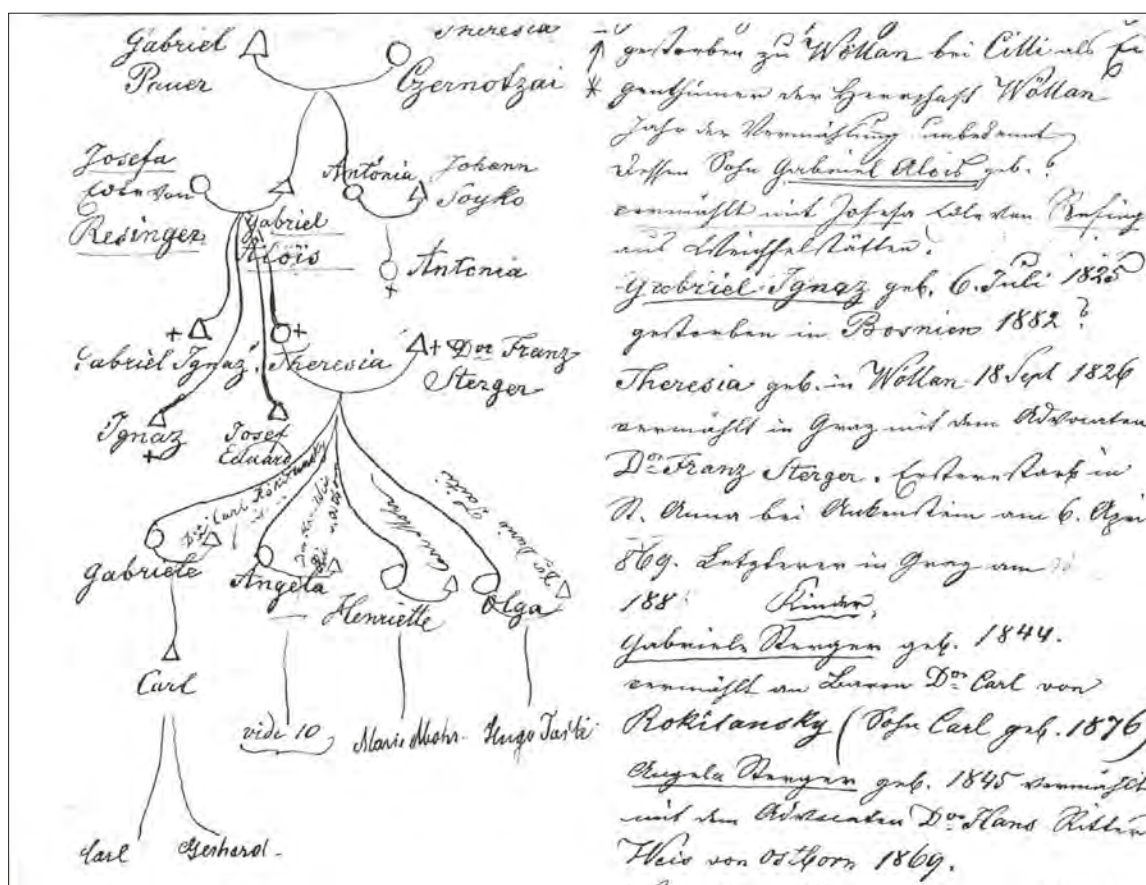 Gabriel
Pauer
Theresia
Czernotzai
Josefa
Edle von
Resinger
Gabriel
Alois
Antonia
Johann
Soyko
Antonia
+
+
Gabriel Ignaz
Theresia
+
+ Dor Franz
Sterger
Ignaz
+
Josef
Eduard
Dr. Carl Rokitansky
Carl Mohr
Gabriele
Angela
Henriette
Olga
Carl
vide 10
Marie Mohr
Hugo
Carl
Gerhard
gestorben zu Wöllan bei Cilli als Ei
genthümer der Herrschaft Wöllan
Jahr der Vermählung unbekannt
dessen Sohn Gabriel Alois geb. ?
vermählt mit Josefa Edle von Resing
aus Weichselstätten.
Gabriel Ignaz geb. 6. Juli 1825
gestorben in Bosnien 1882 ?
Theresia geb. in Wöllan 18 Sept 1826
vermählt in Graz mit dem Advocaten
Dor Franz Sterger. Erstere starb in
St. Anna bei Ankenstein am 6. Apri
869. Letzterer in Graz am
188 Kinder,
Gabriele Sterger geb. 1844.
vermählt an Baron Dor Carl von
Rokitansky (Sohn Carl geb. 1876)
Angela Sterger geb. 1845 vermählt
mit dem Advocaten Dor Hans Ritter
Weis von Ostborn 1869.